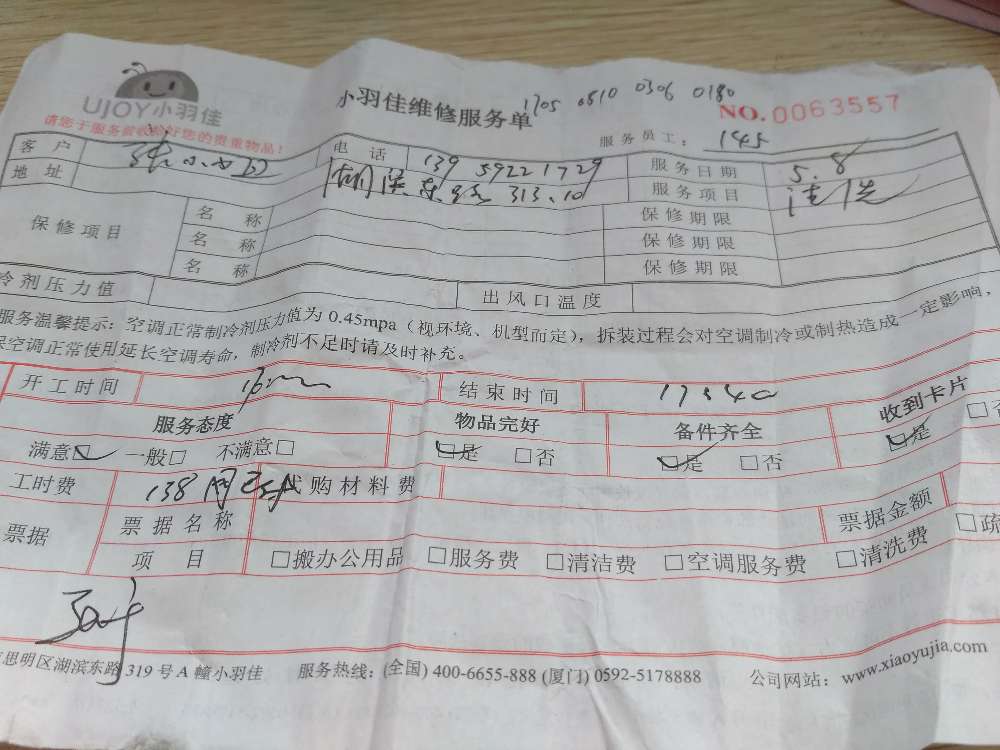 UJOY小羽佳
小羽佳维修服务单
1705 0810 0306 0180
NO.0063557
请您于服务前收给好您的贵重物品!
服务员工: 145
客户 张小 电话 139 59221729 服务日期 5.8
地址 湖滨东路 313.10 服务项目 清洗
保修项目 名称 保修期限
名称 保修期限
名称 保修期限
冷剂压力值 出风口温度
服务温馨提示: 空调正常制冷剂压力值为 0.45mpa (视环境、机型而定), 拆装过程会对空调制冷或制热造成一定影响,
保空调正常使用延长空调寿命, 制冷剂不足时请及时补充。
开工时间 结束时间 17:40
服务态度 物品完好 备件齐全 收到卡片
满意☑ 一般□ 不满意□ ☑是 □否 ☑是 □否 ☑是 □否
工时费 138 代购材料费
票据 票据名称 票据金额
项目 □搬办公用品 □服务费 □清洁费 □空调服务费 □清洗费 □疏
思明区湖滨东路 319 号 A 幢小羽佳 服务热线: (全国) 400-6655-888 (厦门) 0592-5178888 公司网站: www.xiaoyujia.com